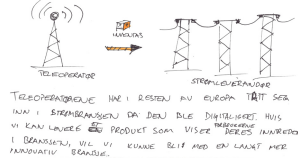 INNVENTAS
TELEOPERATØR
STRØMLEVERANDØR
TELEOPERATØRENE HAR I RESTEN AV EUROPA TATT SEG
INN I STRØMBRANSJEN DA DEN BLE DIGITALISERT. HVIS
VI KAN LEVERE ET PRODUKT SOM VISER FORBRUKERNE DERES INNTREDEN
I BRANSJEN, VIL VI KUNNE BLI MED EN LANGT MER
INNOVATIV BRANSJE.